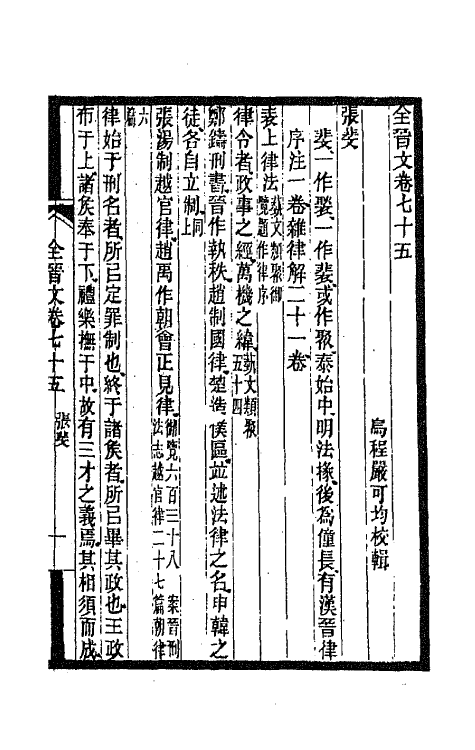 全晉文卷七十五
烏程嚴可均校輯
張斐
斐一作裴一作裴或作聚泰始中明法掾後為僮長有漢晉律
序注一卷雜律解二十一卷
表上律法藝文類聚御覽題作律序
律令者政事之經萬機之緯藝文類聚五十四
鄭鑄刑書晉作執秩趙制國律楚造僕區並述法律之名申韓之
徒各自立制同上
張湯制越官律趙禹作朝會正見律御覽六百三十八 案晉刑法志越官律二十七篇朝律
六篇
律始于刑名者所已定罪制也終于諸矦者所已畢其政也王政
布于上諸矦奉于下禮樂撫于中故有三才之義焉其相須而成
全晉文卷七十五 張斐 一